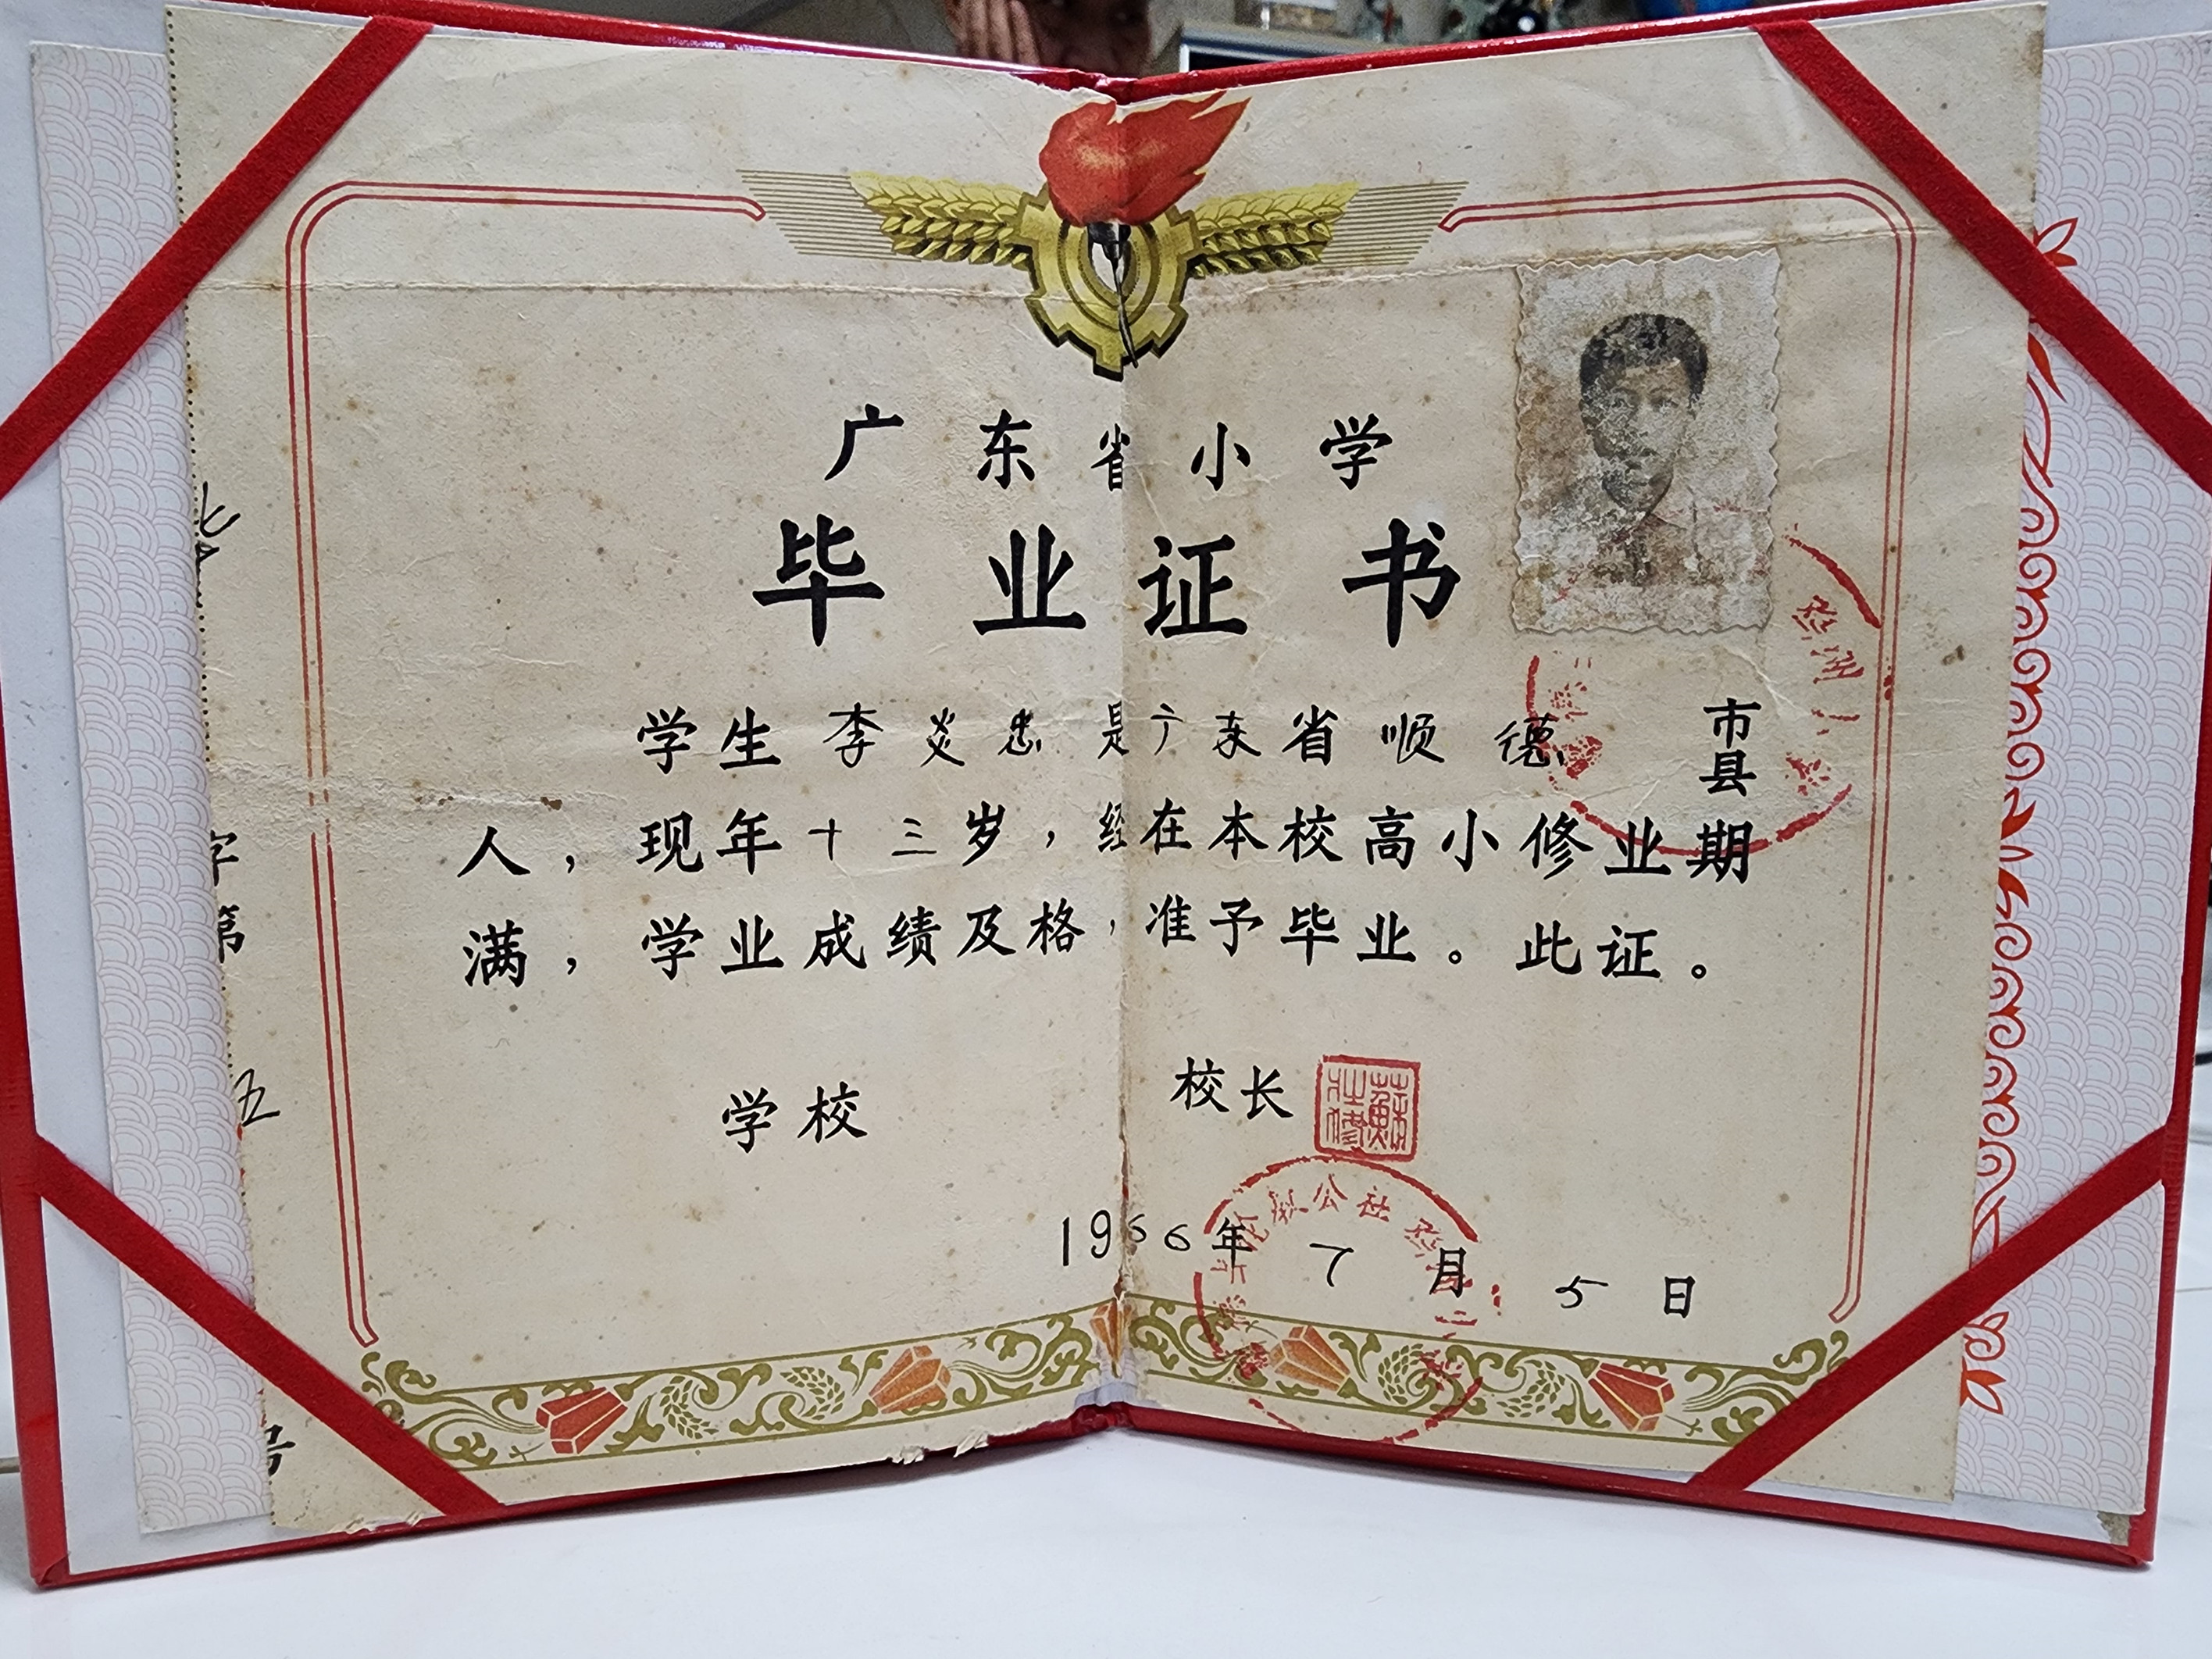 广东省小学
毕业证书
学生李炎忠是广东省顺德市县
人，现年十三岁，经在本校高小修业期
满，学业成绩及格，准予毕业。此证。
学校 校长
蘇
1966年7月5日
公社
字第五号